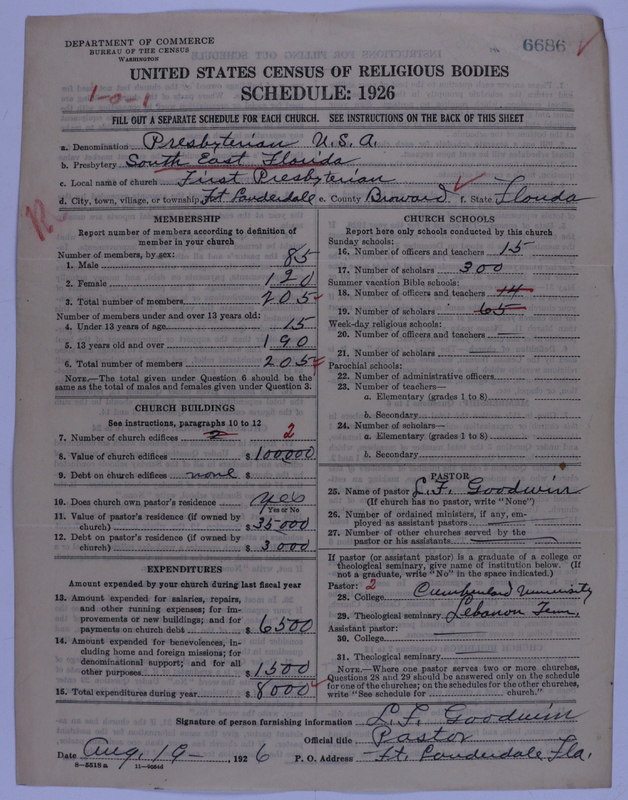 DEPARTMENT OF COMMERCE
BUREAU OF THE CENSUS
WASHINGTON
6686
UNITED STATES CENSUS OF RELIGIOUS BODIES
SCHEDULE: 1926
1-0-1
FILL OUT A SEPARATE SCHEDULE FOR EACH CHURCH. SEE INSTRUCTIONS ON THE BACK OF THIS SHEET
a. Denomination Presbyterian U.S.A.
b. Presbytery South East Florida
c. Local name of church First Presbyterian
d. City, town, village, or township Ft Lauderdale e. County Broward f. State Florida
MEMBERSHIP
Report number of members according to definition of
member in your church
Number of members, by sex:
1. Male 85
2. Female 120
3. Total number of members 205
Number of members under and over 13 years old:
4. Under 13 years of age 15
5. 13 years old and over 190
6. Total number of members 205
NOTE.—The total given under Question 6 should be the
same as the total of males and females given under Question 3.
CHURCH BUILDINGS
See instructions, paragraphs 10 to 12
7. Number of church edifices 2 2
8. Value of church edifices $ 100,000
9. Debt on church edifices none $
10. Does church own pastor's residence yes
Yes or No
11. Value of pastor's residence (if owned by
church) $ 35000
12. Debt on pastor's residence (if owned by
church) $ 3000
EXPENDITURES
Amount expended by your church during last fiscal year
13. Amount expended for salaries, repairs,
and other running expenses; for im-
provements or new buildings; and for
payments on church debt $ 6500
14. Amount expended for benevolences, in-
cluding home and foreign missions; for
denominational support; and for all
other purposes $ 1500
15. Total expenditures during year $ 8000
CHURCH SCHOOLS
Report here only schools conducted by this church
Sunday schools:
16. Number of officers and teachers 15
17. Number of scholars 300
Summer vacation Bible schools:
18. Number of officers and teachers 14
19. Number of scholars 65
Week-day religious schools:
20. Number of officers and teachers —
21. Number of scholars —
Parochial schools:
22. Number of administrative officers
23. Number of teachers—
a. Elementary (grades 1 to 8)
b. Secondary
24. Number of scholars—
a. Elementary (grades 1 to 8)
b. Secondary
PASTOR
25. Name of pastor L.F. Goodwin
(If church has no pastor, write "None")
26. Number of ordained ministers, if any, em-
ployed as assistant pastors —
27. Number of other churches served by the
pastor or his assistants —
If pastor (or assistant pastor) is a graduate of a college or
theological seminary, give name of institution below. (If
not a graduate, write "No" in the space indicated.)
Pastor: 2
28. College Cumberland University
29. Theological seminary Lebanon Tenn.
Assistant pastor:
30. College —
31. Theological seminary —
NOTE.—Where one pastor serves two or more churches,
Questions 28 and 29 should be answered only on the schedule
for one of the churches; on the schedules for the other churches,
write "See schedule for church."
Signature of person furnishing information L.F. Goodwin
Official title Pastor
Date Aug. 19 —, 1926 P. O. Address Ft. Lauderdale Fla.
8—5518a